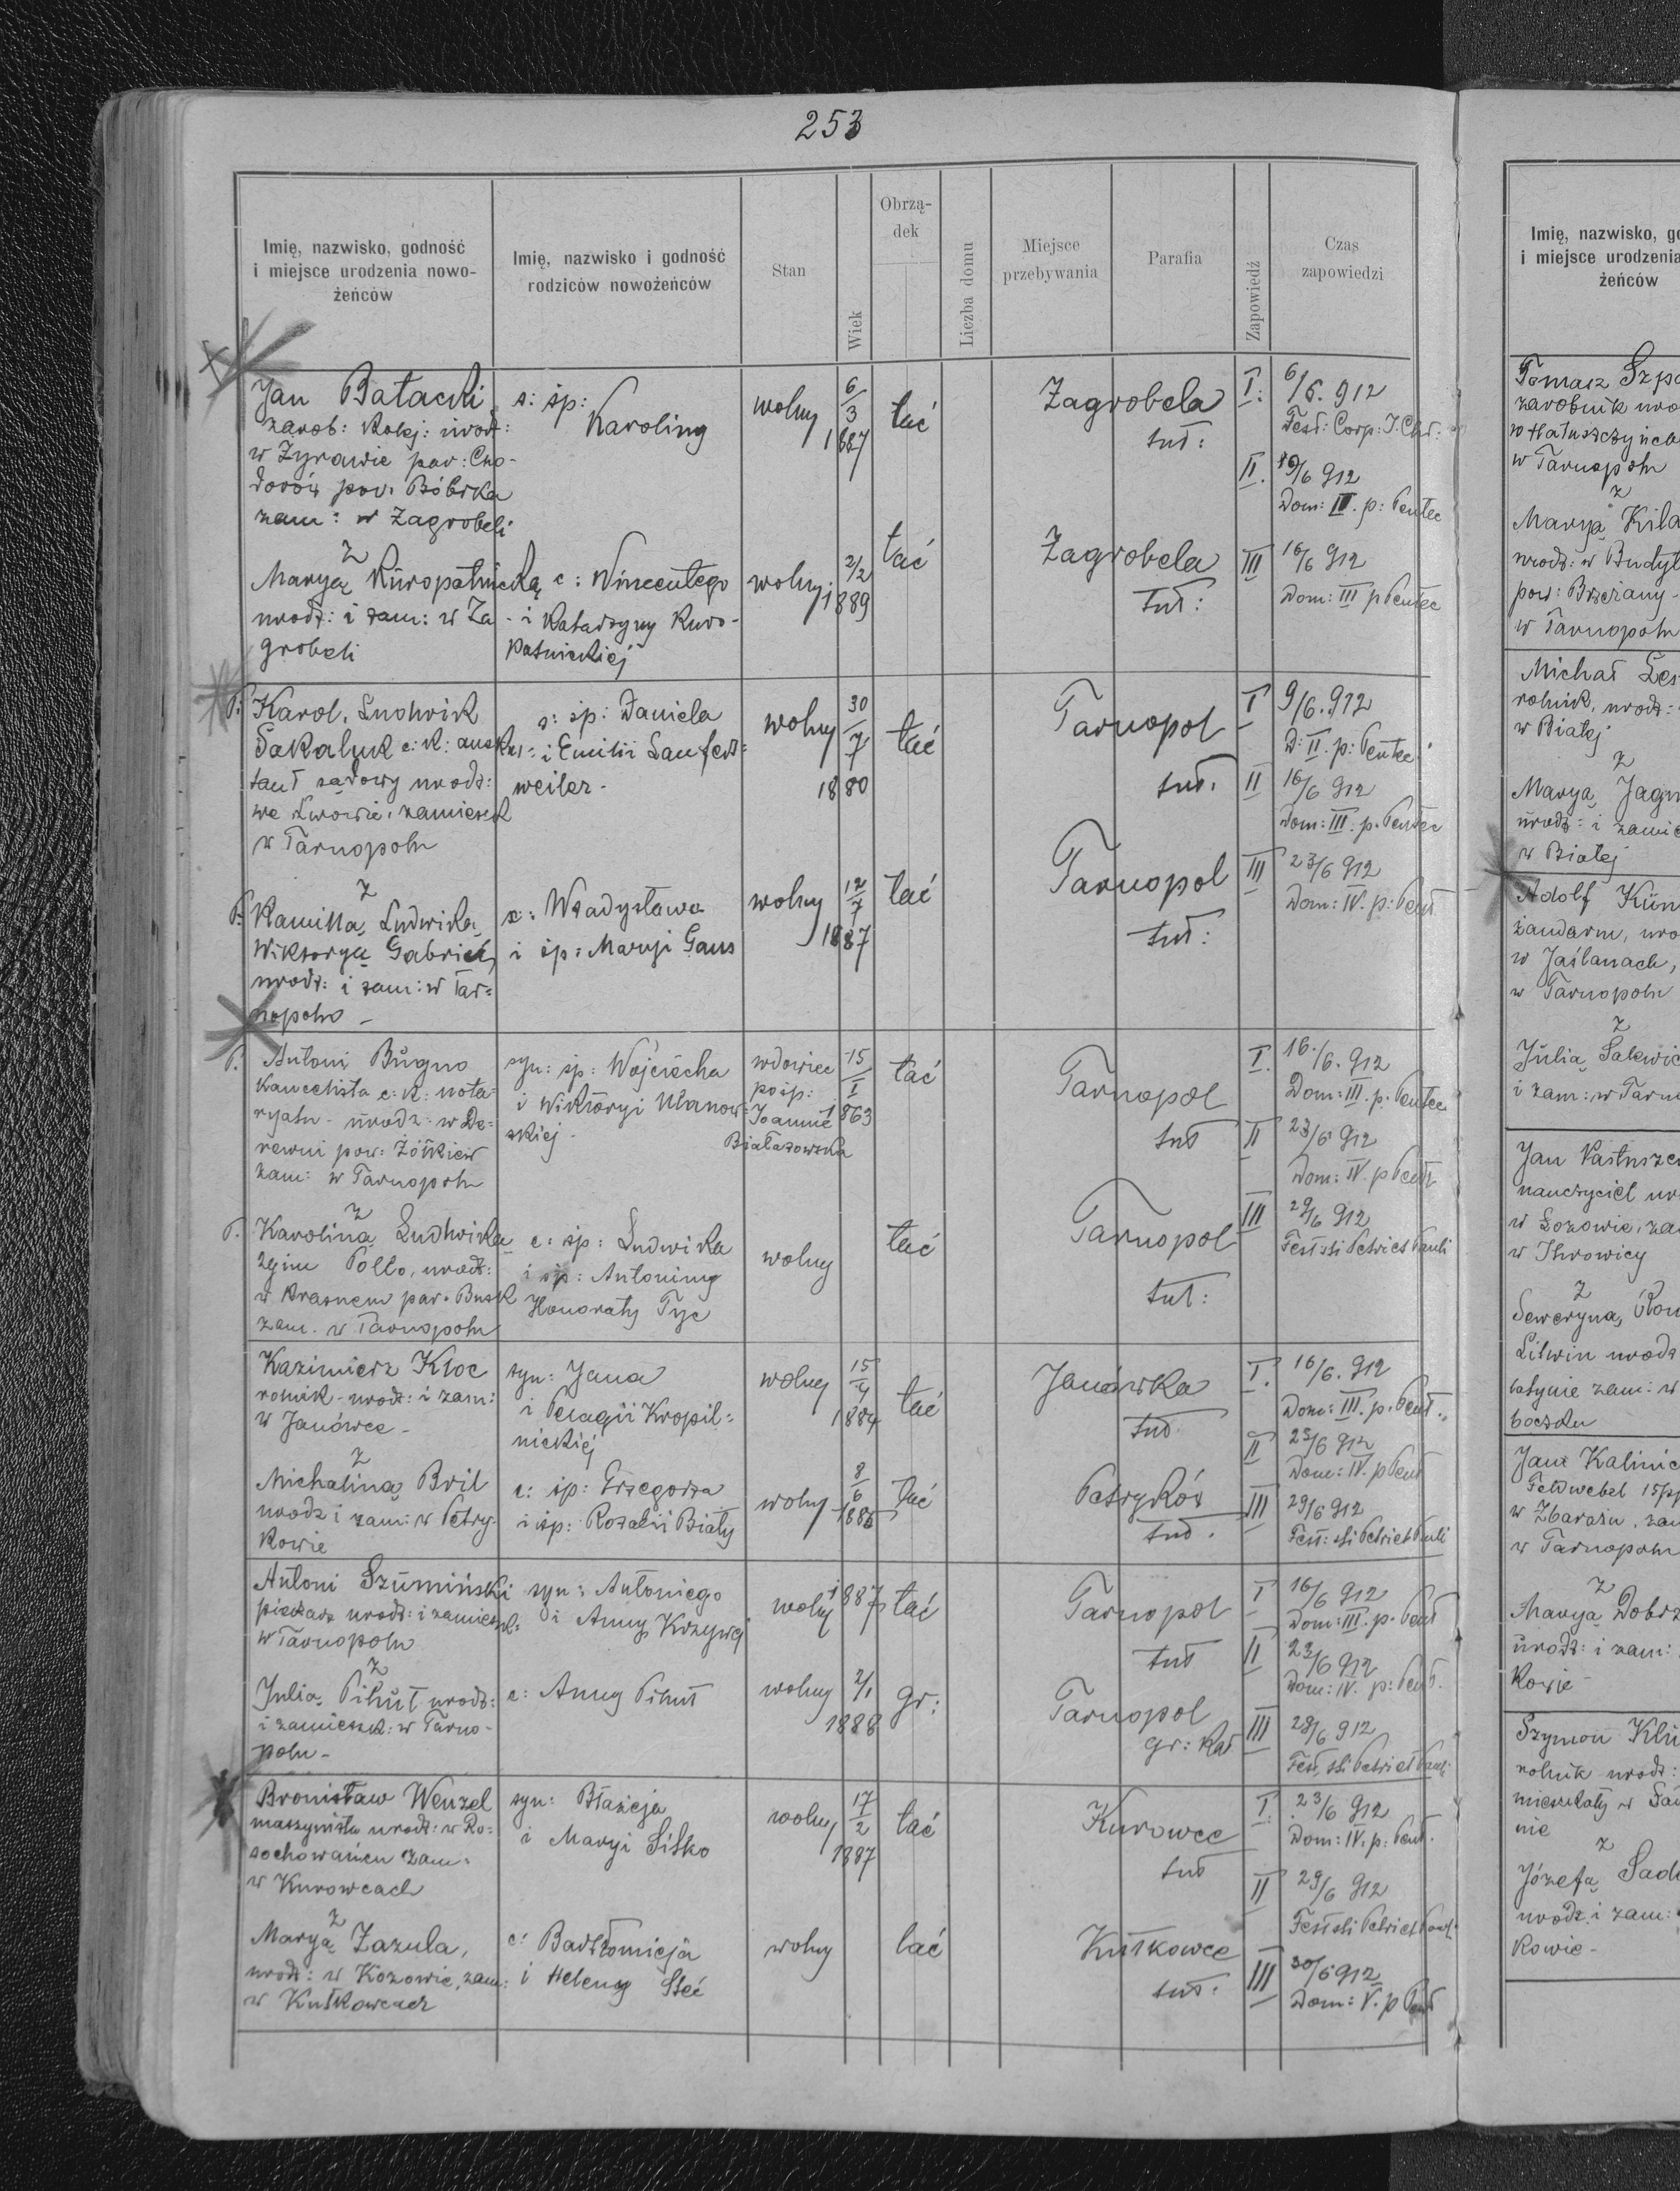 253
Imię, nazwisko, godność
i miejsce urodzenia nowo-
żeńców
Imię, nazwisko i godność
rodziców nowożeńców
Stan
Wiek
Obrzą-
dek
Liczba domu
Miejsce
przebywania
Parafia
Zapowiedź
Czas
zapowiedzi
Jan Batacki
zarob: kolej: urodz:
w Żyrawie par: Cho-
dorów pow. Bóbrka
zam: w Zagrobeli
z
Maryą Kuropatnicką
urodz: i zam: w Za-
grobeli
s: śp:
Karoliny
c: Wincentego
i Katarzyny Kuro-
patnickiej
wolny
6/3
1887
łać
Zagrobela
tut:
I: 6/6. 912
Fest: Corp: J. Chr:
II. 9/6 912
Dom: II. p: Pentec
wolny
2/2
1889
łać
Zagrobela
tut:
III 16/6 912
Dom: III p Pentec
P. Karol, Ludwik
Sakaluk c: k: auskul-
tant sądowy urodz:
we Lwowie, zamieszk
w Tarnopolu
z
P. Kamillą, Ludwiką,
Wiktoryą Gabriel,
urodz: i zam: w Tar=
nopolu -
s: śp: Daniela
i Emilii Laufers=
weiler -
c: Władysława
i śp: Maryi Gans
wolny
30/7
1880
łać
Tarnopol
tut.
I 9/6. 912
D: II. p: Pentec:
II 16/6 912
Dom: III. p. Pentec
wolny
12/7
1887
łać
Tarnopol
tut:
III 23/6 912
Dom: IV. p: Pent
P. Antoni Bugno
kancelista c: k: nota-
ryatu - urodz: w De=
rewni pow: Żółkiew
zam: w Tarnopolu
z
P. Karoliną Ludwiką
Pollo, urodz:
w Krasnem par. Busk
zam. w Tarnopolu
syn: śp: Wojciecha
i Wiktoryi Ulanow-
skiej -
c: śp: Ludwika
i śp: Antoniny
Honoraty Tyc
wdowiec
po śp:
Joannie
Białasowska
15/I
1863
łać
Tarnopol
tut
I. 16/6. 912
Dom: III. p. Pentec
II 23/6 912
Dom: IV. p Pent
wolny
łać
Tarnopol
tut:
III 29/6 912
Fest: sti Petri et Pauli
Kazimierz Kloc
rolnik - urodz: i zam:
w Janówce -
z
Michaliną Bril
urodz i zam: w Petry-
kowie
syn: Jana
i Pelagii Kropil=
nickiej
c: śp: Grzegorza
i śp: Rozalii Biały
wolny
15/4
1884
łać
Janówka
tut.
I. 16/6. 912
Dom: III. p. Pent.
II 23/6 912
Dom: IV. p Pent
wolny
8/6
1885
łać
Petryków
tut.
III 29/6 912
Fest: sti Petri et Pauli
Antoni Szumiński
piekarz urodz: i zamieszk:
w Tarnopolu
z
Julią Pikut urodz:
i zamieszk: w Tarno-
polu -
syn: Antoniego
i Anny Krzywej
c: Anny Pikut
wolny
1887
łać
Tarnopol
tut
I 16/6 912
Dom: III. p. Pent
II 23/6 912
Dom: IV. p: Pent.
wolny
2/1
1888
gr:
Tarnopol
gr: kat
III 29/6 912
Fest. sti Petri et Pauli
Bronisław Wenzel
maszynista urodz: w Ro=
sochowańcu zam:
w Kurowcach
z
Maryą Zazula,
urodz: w Kozowie, zam:
w Kutkowcach
syn: Błażeja
i Maryi Sitko
c: Bartłomieja
i Heleny Steć
wolny
17/2
1887
łać
Kurowce
tut
I. 23/6 912
Dom: IV. p. Pent.
II 29/6 912
Fest sti Petri et Pauli
wolny
łać
Kutkowce
tut.
III 30/6 912
Dom: V. p Pent
Imię, nazwisko, go
i miejsce urodzenia
żeńców
Tomasz Szpa
zarobnik uro
w Tarnopolu
z
Maryą Kila
urodz: w Budył
pow: Brzeżany -
w Tarnopolu
Michał Les
rolnik, urodz:
w Białej
z
Maryą Jagi
urodz: i zamie
w Białej
Adolf Kün
żandarm, uro
w Jaślanach,
w Tarnopolu
z
Julią Salewic
i zam: w Tarn
Jan Pastusze
nauczyciel ur
w Łozowie, za
w Ihrowicy
z
Seweryną, Rom
Litwin urodz
zam: w
Jan Kalinic
Feldwebel 15 pp
w Zbarażu, zam
w Tarnopolu
z
Maryą Dobrz
urodz: i zam:
kowie -
Szymon Kli
rolnik urodz:
mieszkały w
nie
z
Józefą Sad
urodz. i zam:
kowie -